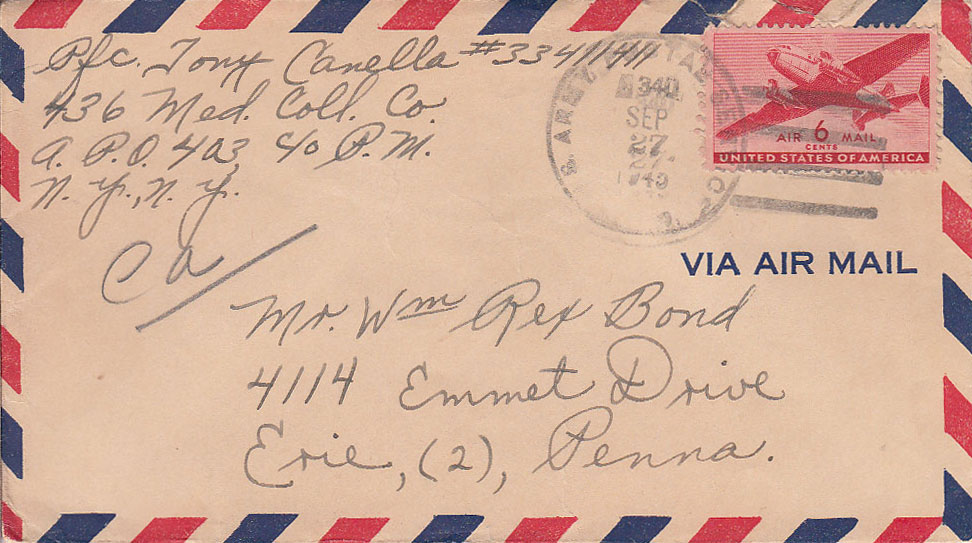 Pfc. Tony Canella #33411411
436 Med. Coll. Co.
A.P.O. 403, c/o P.M.
N.Y., N.Y.
SEP
27
1945
AIR 6 MAIL
CENTS
UNITED STATES OF AMERICA
VIA AIR MAIL
Ca/
Mr. Wm Rex Bond
4114 Emmet Drive
Erie, (2), Penna.